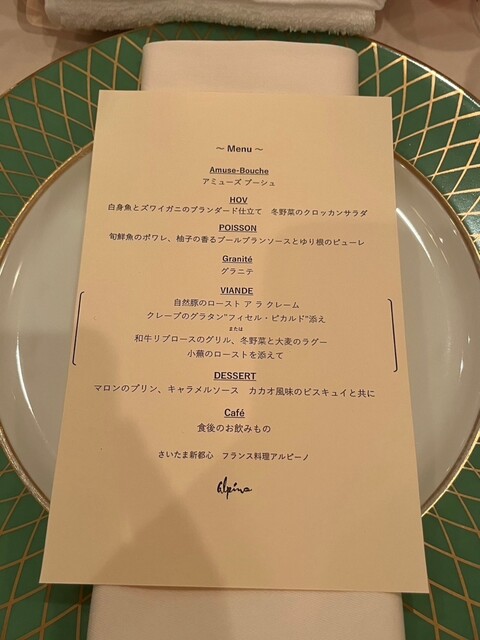 ～ Menu ～
Amuse-Bouche
アミューズ ブーシュ
HOV
白身魚とズワイガニのブランダード仕立て　冬野菜のクロッカンサラダ
POISSON
旬鮮魚のポワレ、柚子の香るブールブランソースとゆり根のピューレ
Granité
グラニテ
VIANDE
自然豚のロースト ア ラ クレーム
クレープのグラタン"フィセル・ピカルド"添え
または
和牛リブロースのグリル、冬野菜と大麦のラグー
小蕪のローストを添えて
DESSERT
マロンのプリン、キャラメルソース　カカオ風味のビスキュイと共に
Café
食後のお飲みもの
さいたま新都心　フランス料理アルピーノ
alpino